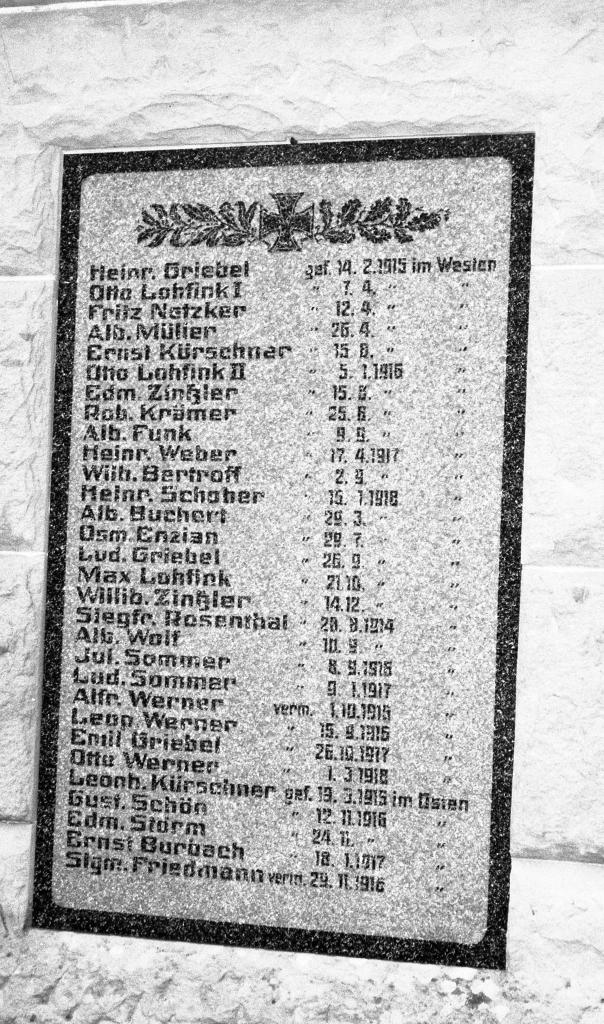 Heinr. Griebel gef. 14. 2.1915 im Westen
Otto Lohfink I " 7. 4. " "
Fritz Netzker " 12. 4. " "
Alb. Müller " 26. 4. " "
Ernst Kürschner " 15. 8. " "
Otto Lohfink II " 5. 1.1916 "
Edm. Zinßler " 15. 6. " "
Rob. Krämer " 25. 6. " "
Alb. Funk " 9. 9. " "
Heinr. Weber " 17. 4.1917 "
Wilh. Bertroff " 2. 9. " "
Heinr. Schober " 15. 1.1918 "
Alb. Buchert " 29. 3. " "
Osm. Enzian " 29. 7. " "
Lud. Griebel " 26. 9. " "
Max Lohfink " 21.10. " "
Willib. Zinßler " 14.12. " "
Siegfr. Rosenthal " 28. 8.1914 "
Alb. Wolf " 10. 9. " "
Jul. Sommer " 8. 9.1915 "
Lud. Sommer " 9. 1.1917 "
Alfr. Werner verm. 1.10.1915 "
Leon. Werner " 15. 9.1916 "
Emil Griebel " 26.10.1917 "
Otto Werner " 1. 3.1918 "
Leonh. Kürschner gef. 19. 3.1915 im Osten
Gust. Schön " 12. 11.1916 "
Edm. Storm " 24. 11. " "
Ernst Burbach " 18. 1.1917 "
Sigm. Friedmann verm. 29. 11.1916 "